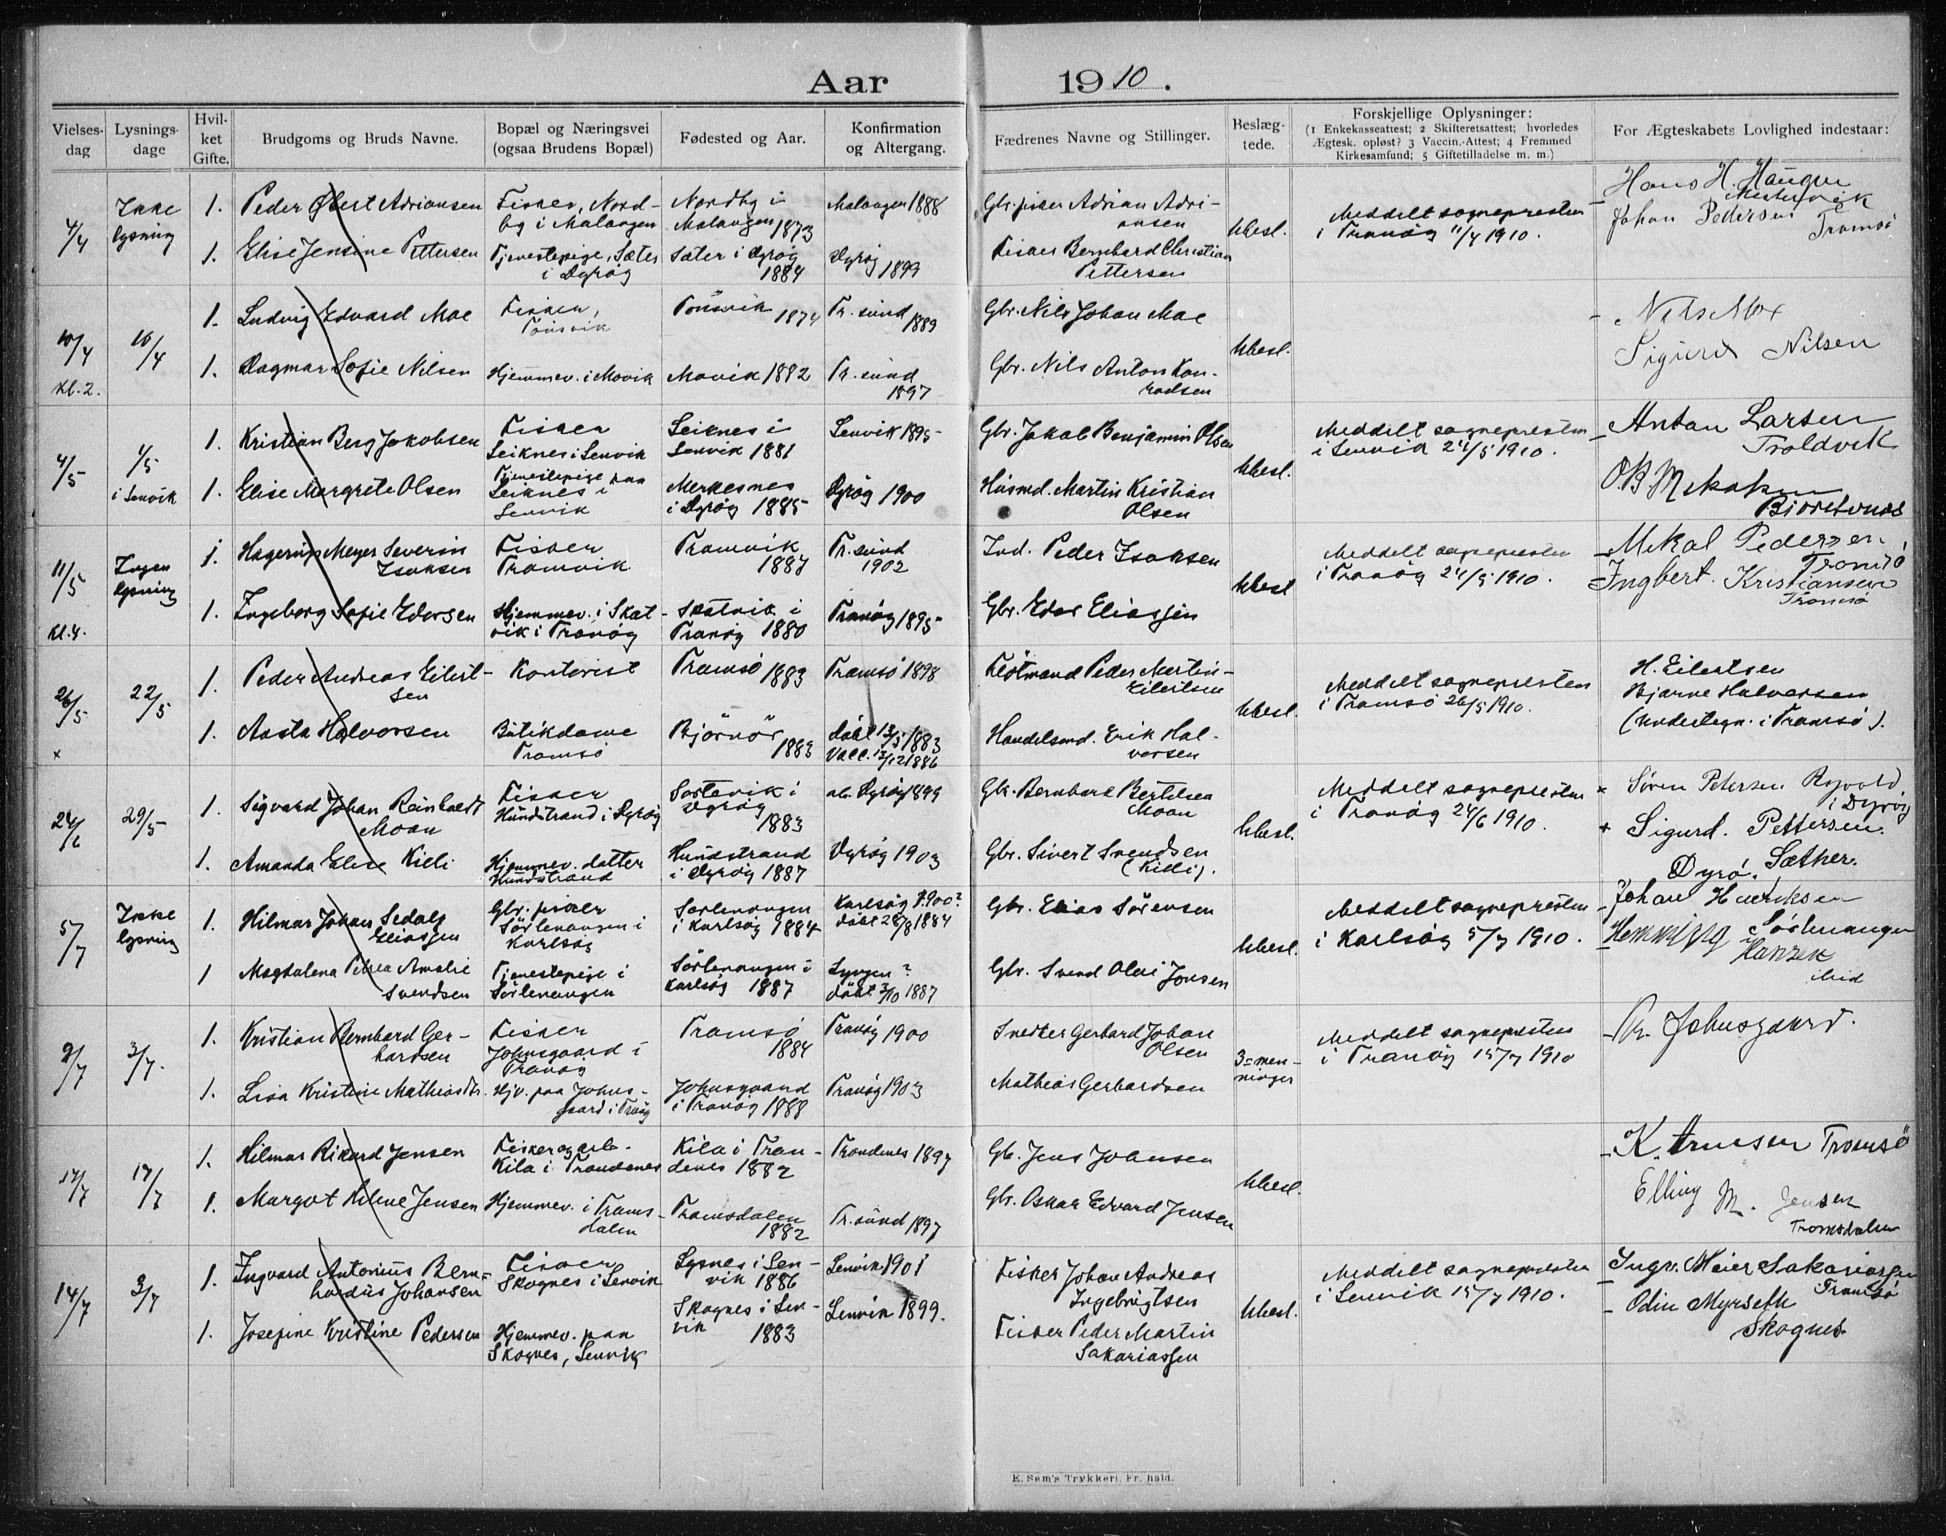 Aar 1910.
Vielses-dag | Lysnings-dage | Hvilket Gifte. | Brudgoms og Bruds Navne. | Bopæl og Næringsvei (ogsaa Brudens Bopæl) | Fødested og Aar. | Konfirmation og Altergang. | Fædrenes Navne og Stillinger. | Beslægtede. | Forskjellige Oplysninger: (1 Enkekasseattest; 2 Skifteretsattest; hvorledes Ægtesk. opløst? 3 Vaccin.-Attest; 4 Fremmed Kirkesamfund; 5 Giftetilladelse m. m.) | For Ægteskabets Lovlighed indestaar:
4/4 | Ikke lysning | 1. | Peder Obert Adriansen | Fisker, Nordby i Malangen | Nordby i Malangen 1873 | Malangen 1888 | Gbr. fisker Adrian Adriansen | Ubesl. | Meddelt sognepresten i Tranøy 11/4 1910. | Hans H. Haugen Mestervik
1. | Elise Jensine Pettersen | Tjenestepige, Sæter i Dyrøy | Sæter i Dyrøy 1884 | Dyrøy 1899 | Fisker Bernhard Christian Pettersen | Johan Pedersen Tromsø
10/4 Kl. 2. | 10/4 | 1. | Ludvig Edvard Moe | Fisker, Tønsvik | Tønsvik 1874 | Tr.sund 1889 | Gbr. Nils Johan Moe | Ubesl. | Nils Moe
1. | Dagmar Sofie Nilsen | Hjemmev. i Movik | Movik 1882 | Tr.sund 1897 | Gbr. Nils Anton Konradsen | Sigurd Nilsen
4/5 | 1/5 i Lenvik | 1. | Kristian Berg Jakobsen | Fisker Leiknes i Lenvik | Leiknes i Lenvik 1881 | Lenvik 1895 | Gbr. Jakob Benjamin Olsen | Ubesl. | Meddelt sognepresten i Lenvik 24/5 1910. | Anton Larsen Troldvik
1. | Elise Margrete Olsen | Tjenestepige paa Leiknes i Lenvik | Merkesnes i Dyrøy 1885 | Dyrøy 1900 | Husmd. Martin Kristian Olsen
11/5 Kl. 4. | Ingen lysning | 1. | Hagerup Meyer Severin Isaksen | Fisker Tromvik | Tromvik 1887 | Tr.sund 1902 | Ind. Peder Isaksen | Ubesl | Meddelt sognepresten i Tranøy 24/5 1910. | Mikal Pederzen Tromsø
1. | Ingeborg Sofie Edersen | Hjemmev. i Skatvik i Tranøy | Skatvik i Tranøy 1880 | Tranøy 1895 | Gbr. Eder Eliassen | Ingbert Kristiansen Tromsø
26/5 x | 22/5 | 1. | Peder Andreas Eilertsen | Kontorist | Tromsø 1883 | Tromsø 1898 | Fløtmand Peder Martin Eilertsen | Ubesl. | Meddelt sognepresten i Tromsø 26/5 1910. | H. Eilertsen
1. | Aasta Halvorsen | Butikdame Tromsø | Bjørnør 1883 | døbt 13/5 1883 Vacc. 12/12 1886 | Handelsmd. Erik Halvorsen | Bjarne Halvorsen (undertegn. i Tromsø).
24/6 | 29/5 | 1. | Sigvard Johan Reinholdt Moan | Fisker Hundstrand i Dyrøy | Sortevik i Dyrøy 1883 | Dyrøy 1899 | Gbr. Bernhard Bertilsen Moan | Ubesl. | Meddelt sognepresten i Tranøy 24/6 1910. | x Søren Petersen i Dyrøy
1. | Amanda Elise Kielli | Hjemmev. datter Hundstrand | Hundstrand i Dyrøy 1887 | Dyrøy 1903 | Gbr. Sivert Svendsen | x Sigurd. Pettersen. Dyrø. Sæther.
5/7 | Ikke lysning | 1. | Hilmar Johan Sedalg Eliassen | Gbr. fisker Sørlenangen i Karlsøy | Sørlenangen i Karlsøy 1884 | Karlsøy 1900? døbt 28/8 1884 | Gbr. Elias Sørensen | Ubesl. | Meddelt sognepresten i Karlsøy 5/7 1910. | Johan Henriksen Sørlenangen
1 | Magdalena Petrea Amalie Svendsen | Tjenestepige i Sørlenangen | Sørlenangen i Karlsøy 1887 | Lyngen? døbt 2/10 1887 | Gbr. Svend Olai Jensen | Hemming Hansen ibid
9/7 | 3/7. | 1. | Kristian Bernhard Gerhardsen | Fisker Johnsgaard i Tranøy | Tromsø 1884 | Tranøy 1900 | Snedker Gerhard Johan Olsen | 3=menninger | Meddelt sognepresten i Tranøy 15/7 1910 | Johnsgaard.
1. | Lisa Kristine Mathiasdtr. | Hjv. paa Johnsgaard i Tranøy | Johnsgaard i Tranøy 1888 | Tranøy 1903 | Mathias Gerhardsen
17/7 | 17/7 | 1. | Hilmar Rikard Jensen | Fisker og arb. Kila i Trondenes | Kila i Trondenes 1882 | Trondenes 1897 | Gb. Jens Johansen | Ubesl. | K. Arnesen Tromsø
1. | Margot Helene Jensen | Hjemmev. i Tromsdalen | Tromsdalen 1882 | Tr.sund 1897 | Gbr. Oskar Edvard Jensen | Elling M. Jensen Tromsdalen
14/7 | 3/7 | 1. | Ingvard Antonius Bernhardus Johansen | Fisker Skognes i Lenvik | Lysnes i Lenvik 1886 | Lenvik 1901 | Fisker Johan Andreas Ingebrigtsen | Ubesl. | Meddelt sognepresten i Lenvik 15/7 1910. | Ingv. Meier Sakariassen Tromsø
1. | Josefine Kristine Pedersen | Hjemmev. paa Skognes, Lenvik | Skognes i Lenvik 1883 | Lenvik 1899. | Fisker Peder Martin Sakariassen | Odin Myrseth Skognes.
E. Sem's Trykkeri, Fr.hald.